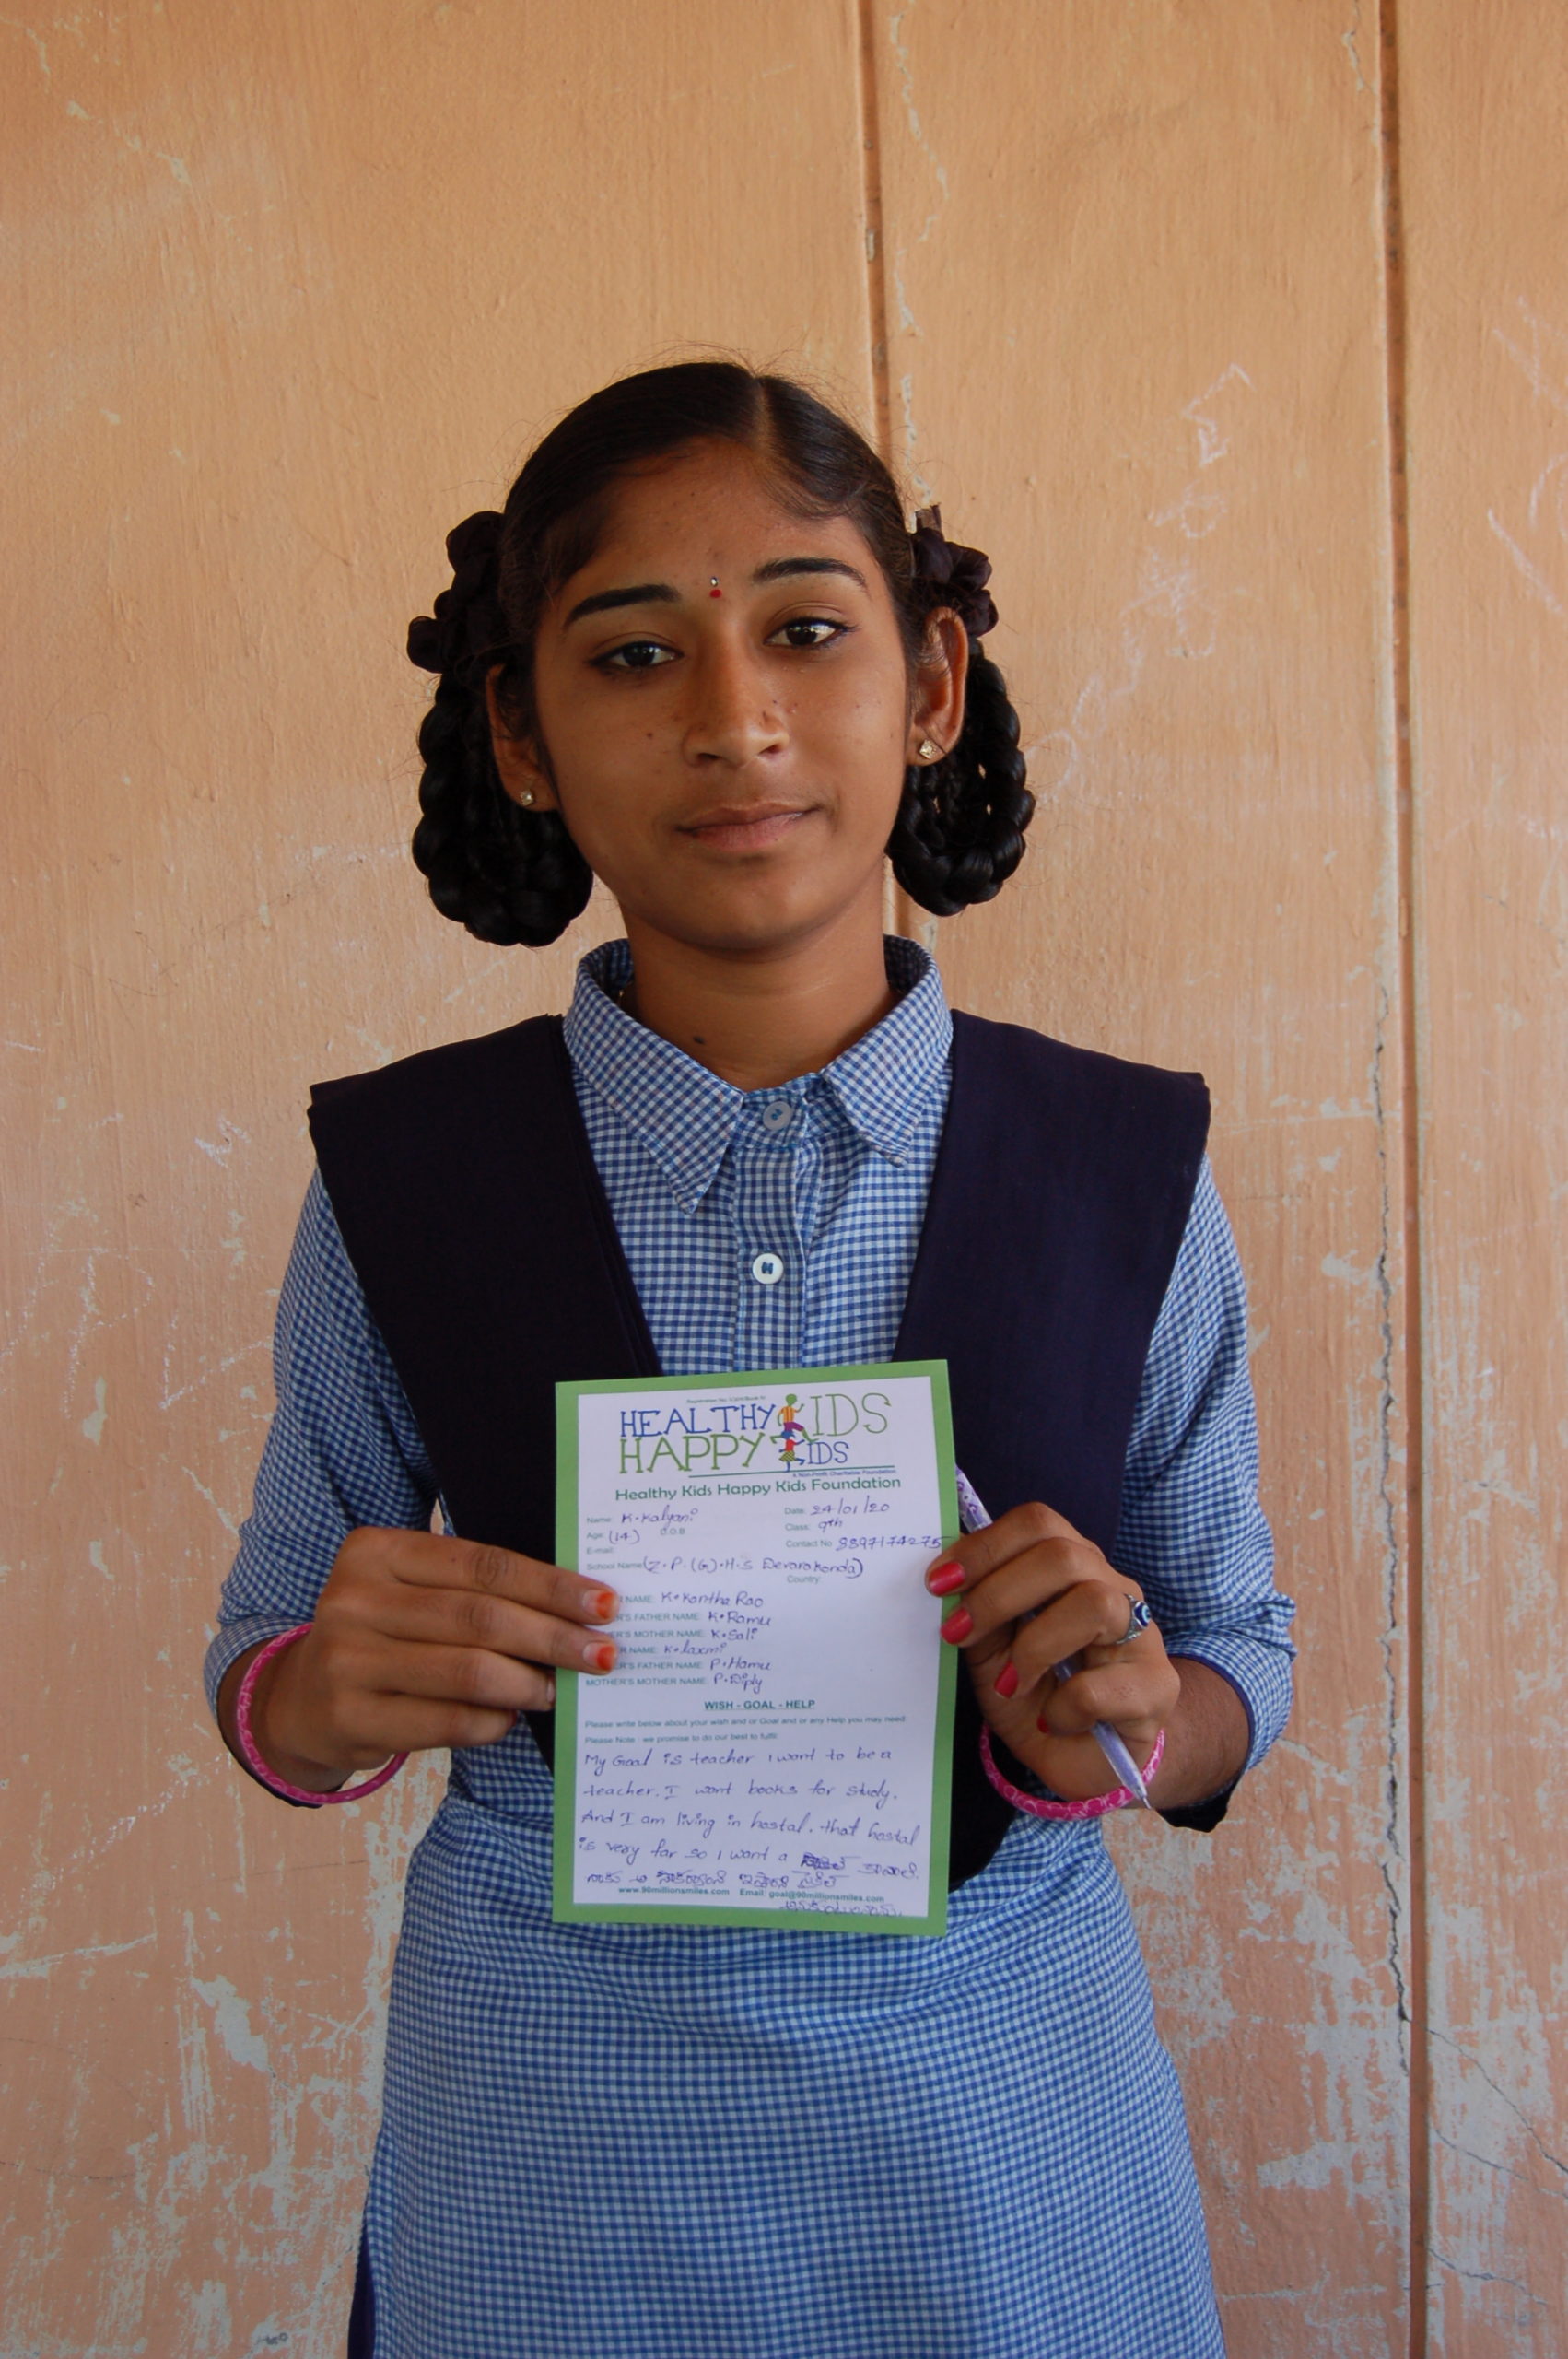 HEALTHY KIDS
HAPPY KIDS
A Non-Profit Charitable Foundation
Healthy Kids Happy Kids Foundation
Name: K. Kalyani Date: 24/01/20
Age: (14) D.O.B. Class: 9th
E-mail: Contact No
School Name (Z.P.(G).H.S Devarakonda)
Country:
NAME: K. Kantha Rao
R'S FATHER NAME: K. Ramu
ER'S MOTHER NAME: K. Sali
R NAME: K. laxmi
ER'S FATHER NAME: P. Hamu
MOTHER'S MOTHER NAME: P. Diply
WISH - GOAL - HELP
Please write below about your wish and or Goal and or any Help you may need.
Please Note : we promise to do our best to fulfil:
My Goal is teacher I want to be a
teacher. I want books for study.
And I am living in hostal. that hostal
is very far so I want a కావాలి.
నాకు ఆ
www.90millionsmiles.com Email: goal@90millionsmiles.com